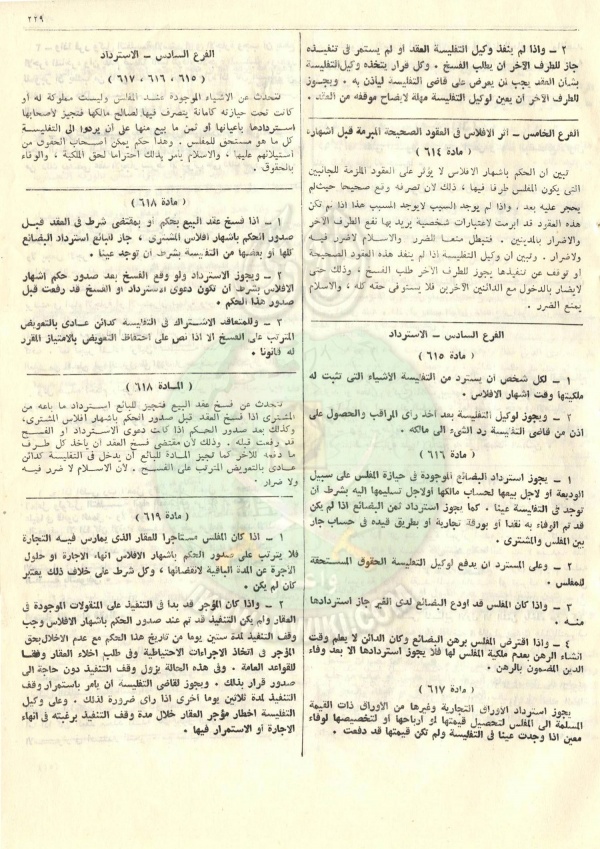 ٢٢٩
٢ – واذا لم ينفذ وكيل التفليسة العقد او لم يستمر فى تنفيذه
جاز للطرف الآخر ان يطلب الفسخ . وكل قرار يتخذه وكيل التفليسة
بشأن العقد يجب ان يعرض على قاضى التفليسة ليأذن به . ويجوز
للطرف الآخر ان يعين لوكيل التفليسة مهلة لايضاح موقفه من العقد .
الفرع الخامس – اثر الافلاس فى العقود الصحيحة المبرمة قبل اشهاره
( مادة ٦١٤ )
تبين ان الحكم باشهار الافلاس لا يؤثر على العقود الملزمة للجانبين
التى يكون المفلس طرفا فيها ، ذلك لان تصرفه وقع صحيحا حيث لم
يحجر عليه بعد . واذا لم يوجد السبب لايوجد المسبب هذا اذا لم تكن
هذه العقود قد ابرمت لاعتبارات شخصية يريد بها نفع الطرف الآخر
والاضرار بالمدينين . فتبطل منعا للضرر والاسلام لاضرر فيه
ولاضرار . وتبين ان وكيل التفليسة اذا لم ينفذ هذه العقود الصحيحة
او توقف عن تنفيذها يجوز للطرف الآخر طلب الفسخ . وذلك حتى
لايضار بالدخول مع الدائنين الآخرين فلا يستوفى حقه كله . والاسلام
يمنع الضرر .
الفرع السادس – الاسترداد
( مادة ٦١٥ )
١ – لكل شخص ان يسترد من التفليسة الأشياء التى تثبت له
ملكيتها وقت اشهار الافلاس .
٢ – ويجوز لوكيل التفليسة بعد اخذ رأى المراقب والحصول على
اذن من قاضى التفليسة رد الشىء الى مالكه .
( مادة ٦١٦ )
١ – يجوز استرداد البضائع الموجودة فى حيازة المفلس على سبيل
الوديعة او لاجل بيعها لحساب مالكها اولاجل تسليمها اليه بشرط ان
توجد فى التفليسة عينا . كما يجوز استرداد ثمن البضائع اذا لم يكن
قد تم الوفاء به نقدا او بورقة تجارية او بطريق قيده فى حساب جار
بين المفلس والمشترى .
٢ – وعلى المسترد ان يدفع لوكيل التفليسة الحقوق المستحقة
للمفلس .
٣ – واذا كان المفلس قد اودع البضائع لدى الغير جاز استردادها
منه .
٤ – واذا اقترض المفلس برهن البضائع وكان الدائن لا يعلم وقت
انشاء الرهن بعدم ملكية المفلس لها فلا يجوز استردادها الا بعد وفاء
الدين المضمون بالرهن .
( مادة ٦١٧ )
يجوز استرداد الاوراق التجارية وغيرها من الاوراق ذات القيمة
المسلمة الى المفلس لتحصيل قيمتها او ارباحها او لتخصيصها لوفاء
معين اذا وجدت عينا فى التفليسة ولم تكن قيمتها قد دفعت .
الفرع السادس – الاسترداد
( ٦١٥ ، ٦١٦ ، ٦١٧ )
تتحدث عن الاشياء الموجودة عند المفلس وليست مملوكة له او
كانت تحت حيازته كأمانة يتصرف فيها لصالح مالكها فتجيز لاصحابها
استردادها بأعيانها او ثمن ما بيع منها على ان يردوا الى التفليسة
كل ما هو مستحق للمفلس . وهذا حكم يمكن أصحاب الحقوق من
استيلائهم عليها . والاسلام يأمر بذلك احتراما لحق الملكية ، والوفاء
بالحقوق .
( مادة ٦١٨ )
١ – اذا فسخ عقد البيع بحكم أو بمقتضى شرط فى العقد قبل
صدور الحكم باشهار افلاس المشترى ، جاز للبائع استرداد البضائع
كلها أو بعضها من التفليسة بشرط أن توجد عينا .
٢ – ويجوز الاسترداد ولو وقع الفسخ بعد صدور حكم اشهار
الافلاس بشرط ان تكون دعوى الاسترداد او الفسخ قد رفعت قبل
صدور هذا الحكم .
٣ – وللمتعاقد الاشتراك فى التفليسة كدائن عادى بالتعويض
المترتب على الفسخ الا اذا نص على احتفاظ التعويض بالامتياز المقرر
له قانونا .
( المادة ٦١٨ )
تتحدث عن فسخ عقد البيع فتجيز للبائع استرداد ما باعه من
المشترى اذا فسخ العقد قبل صدور الحكم باشهار افلاس المشترى،
وكذلك بعد صدور الحكم اذا كانت دعوى الاسترداد أو الفسخ
قد رفعت قبله . وذلك لان مقتضى فسخ العقد ان ياخذ كل طرف
ما دفعه للآخر كما تجيز المادة للبائع أن يدخل فى التفليسة كدائن
عادى بالتعويض المترتب على الفسخ . لأن الاسلام لا ضرر فيه
ولا ضرار .
( مادة ٦١٩ )
١ – اذا كان المفلس مستأجرا للعقار الذى يمارس فيه التجارة
فلا يترتب على صدور الحكم باشهار الافلاس انهاء الاجارة او حلول
الاجرة عن المدة الباقية لانقضائها ، وكل شرط على خلاف ذلك يعتبر
كان لم يكن .
٢ – واذا كان المؤجر قد بدأ فى التنفيذ على المنقولات الموجودة فى
العقار ولم يكن التنفيذ قد تم عند صدور الحكم باشهار الافلاس وجب
وقف التنفيذ لمدة ستين يوما من تاريخ هذا الحكم مع عدم الاخلال بحق
المؤجر فى اتخاذ الاجراءات الاحتياطية وفى طلب اخلاء العقار وفقا
للقواعد العامة . وفى هذه الحالة يزول وقف التنفيذ دون حاجة الى
صدور قرار بذلك . ويجوز لقاضى التفليسة ان يامر باستمرار وقف
التنفيذ لمدة ثلاثين يوما اخرى اذا راى ضرورة لذلك . وعلى وكيل
التفليسة اخطار مؤجر العقار خلال مدة وقف التنفيذ برغبته فى انهاء
الاجارة أو الاستمرار فيها .